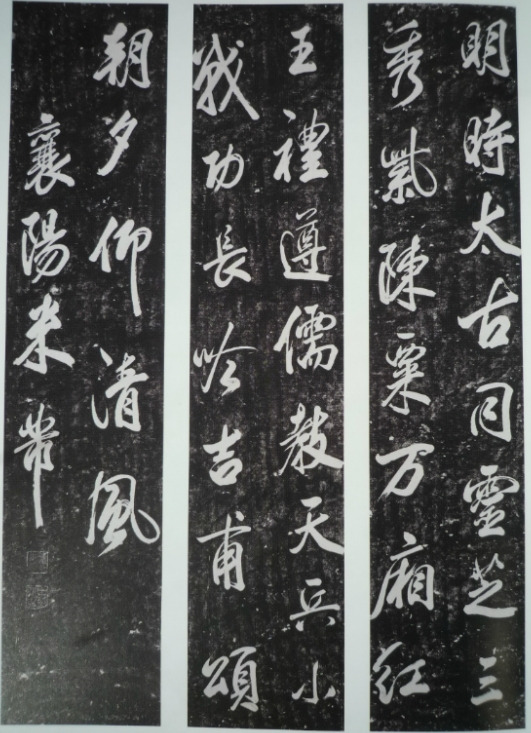 明時太古同靈芝三
秀紫陳粟万廂紅
王禮遵儒教天兵小
戰功長吟吉甫頌
朝夕仰清風
襄陽米芾